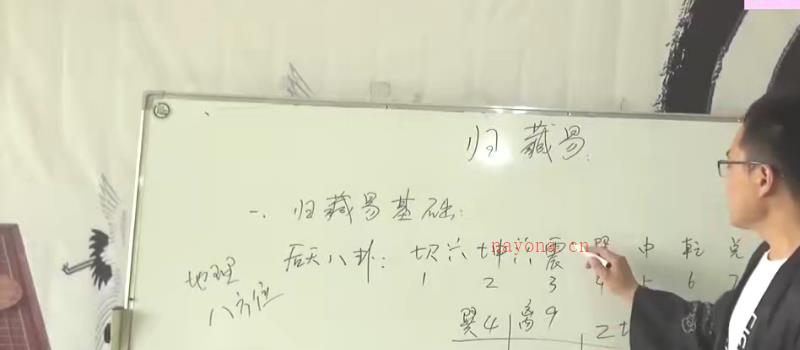 归藏易:
一、归藏易基础:
后天八卦: 坎六 坤八 震 巽 中 乾 兑
1 2 3 4 5 6 7
地理
八方位
巽4 离9 2坤
nayona.cn